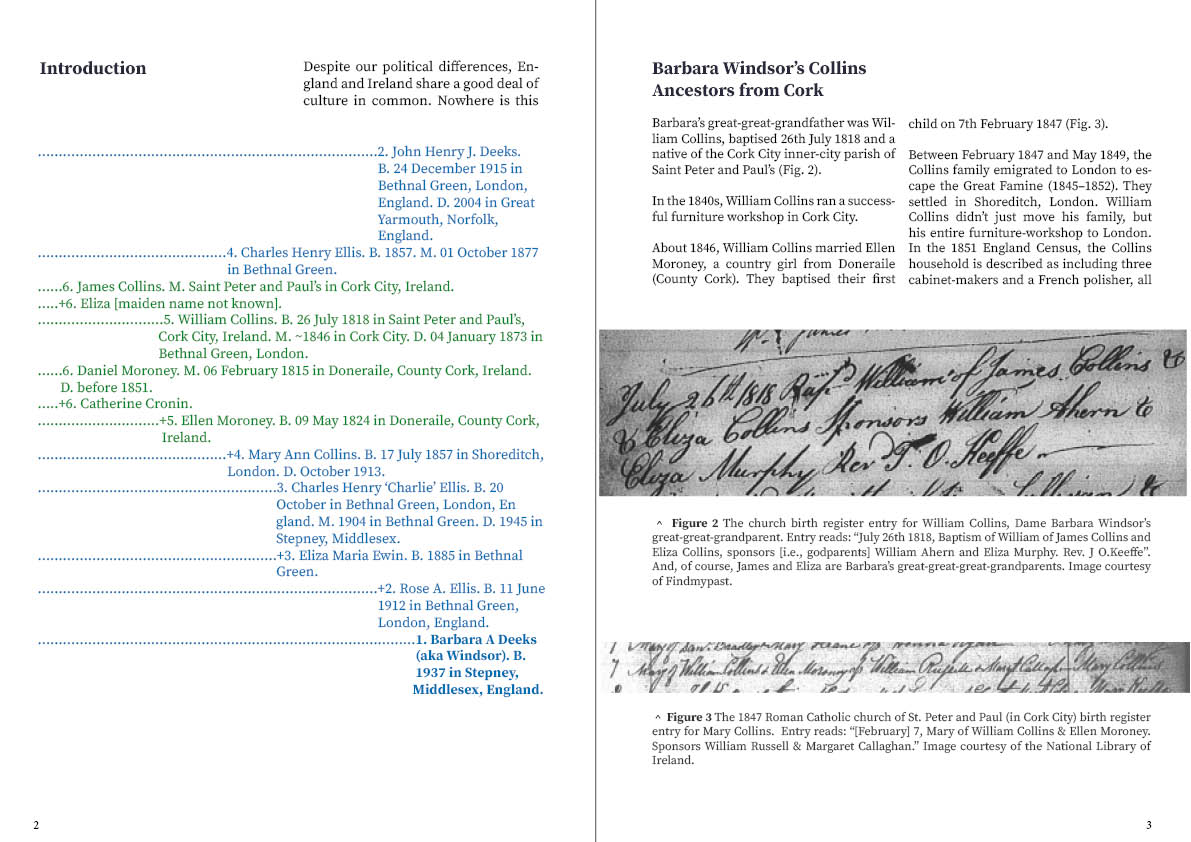 Introduction
Despite our political differences, En-
gland and Ireland share a good deal of
culture in common. Nowhere is this
..................................................................................2. John Henry J. Deeks.
B. 24 December 1915 in
Bethnal Green, London,
England. D. 2004 in Great
Yarmouth, Norfolk,
England.
.............................................4. Charles Henry Ellis. B. 1857. M. 01 October 1877
in Bethnal Green.
......6. James Collins. M. Saint Peter and Paul's in Cork City, Ireland.
.....+6. Eliza [maiden name not known].
..............................5. William Collins. B. 26 July 1818 in Saint Peter and Paul's,
Cork City, Ireland. M. ~1846 in Cork City. D. 04 January 1873 in
Bethnal Green, London.
......6. Daniel Moroney. M. 06 February 1815 in Doneraile, County Cork, Ireland.
D. before 1851.
.....+6. Catherine Cronin.
.............................+5. Ellen Moroney. B. 09 May 1824 in Doneraile, County Cork,
Ireland.
.............................................+4. Mary Ann Collins. B. 17 July 1857 in Shoreditch,
London. D. October 1913.
.........................................................3. Charles Henry ‘Charlie’ Ellis. B. 20
October in Bethnal Green, London, En
gland. M. 1904 in Bethnal Green. D. 1945 in
Stepney, Middlesex.
.........................................................+3. Eliza Maria Ewin. B. 1885 in Bethnal
Green.
..................................................................................+2. Rose A. Ellis. B. 11 June
1912 in Bethnal Green,
London, England.
...........................................................................................1. Barbara A Deeks
(aka Windsor). B.
1937 in Stepney,
Middlesex, England.
2
Barbara Windsor’s Collins
Ancestors from Cork
Barbara’s great-great-grandfather was Wil-
liam Collins, baptised 26th July 1818 and a
native of the Cork City inner-city parish of
Saint Peter and Paul’s (Fig. 2).
In the 1840s, William Collins ran a success-
ful furniture workshop in Cork City.
About 1846, William Collins married Ellen
Moroney, a country girl from Doneraile
(County Cork). They baptised their first
child on 7th February 1847 (Fig. 3).
Between February 1847 and May 1849, the
Collins family emigrated to London to es-
cape the Great Famine (1845–1852). They
settled in Shoreditch, London. William
Collins didn’t just move his family, but
his entire furniture-workshop to London.
In the 1851 England Census, the Collins
household is described as including three
cabinet-makers and a French polisher, all
July 26th 1818 Bap William of James Collins &
& Eliza Collins Sponsors William Ahern &
Eliza Murphy Rev T. O. Keeffe
^ Figure 2 The church birth register entry for William Collins, Dame Barbara Windsor’s
great-great-grandparent. Entry reads: “July 26th 1818, Baptism of William of James Collins and
Eliza Collins, sponsors [i.e., godparents] William Ahern and Eliza Murphy. Rev. J O.Keeffe”.
And, of course, James and Eliza are Barbara’s great-great-great-grandparents. Image courtesy
of Findmypast.
7 Mary of William Collins & Ellen Moroney William Mary Collins
^ Figure 3 The 1847 Roman Catholic church of St. Peter and Paul (in Cork City) birth register
entry for Mary Collins. Entry reads: “[February] 7, Mary of William Collins & Ellen Moroney.
Sponsors William Russell & Margaret Callaghan.” Image courtesy of the National Library of
Ireland.
3